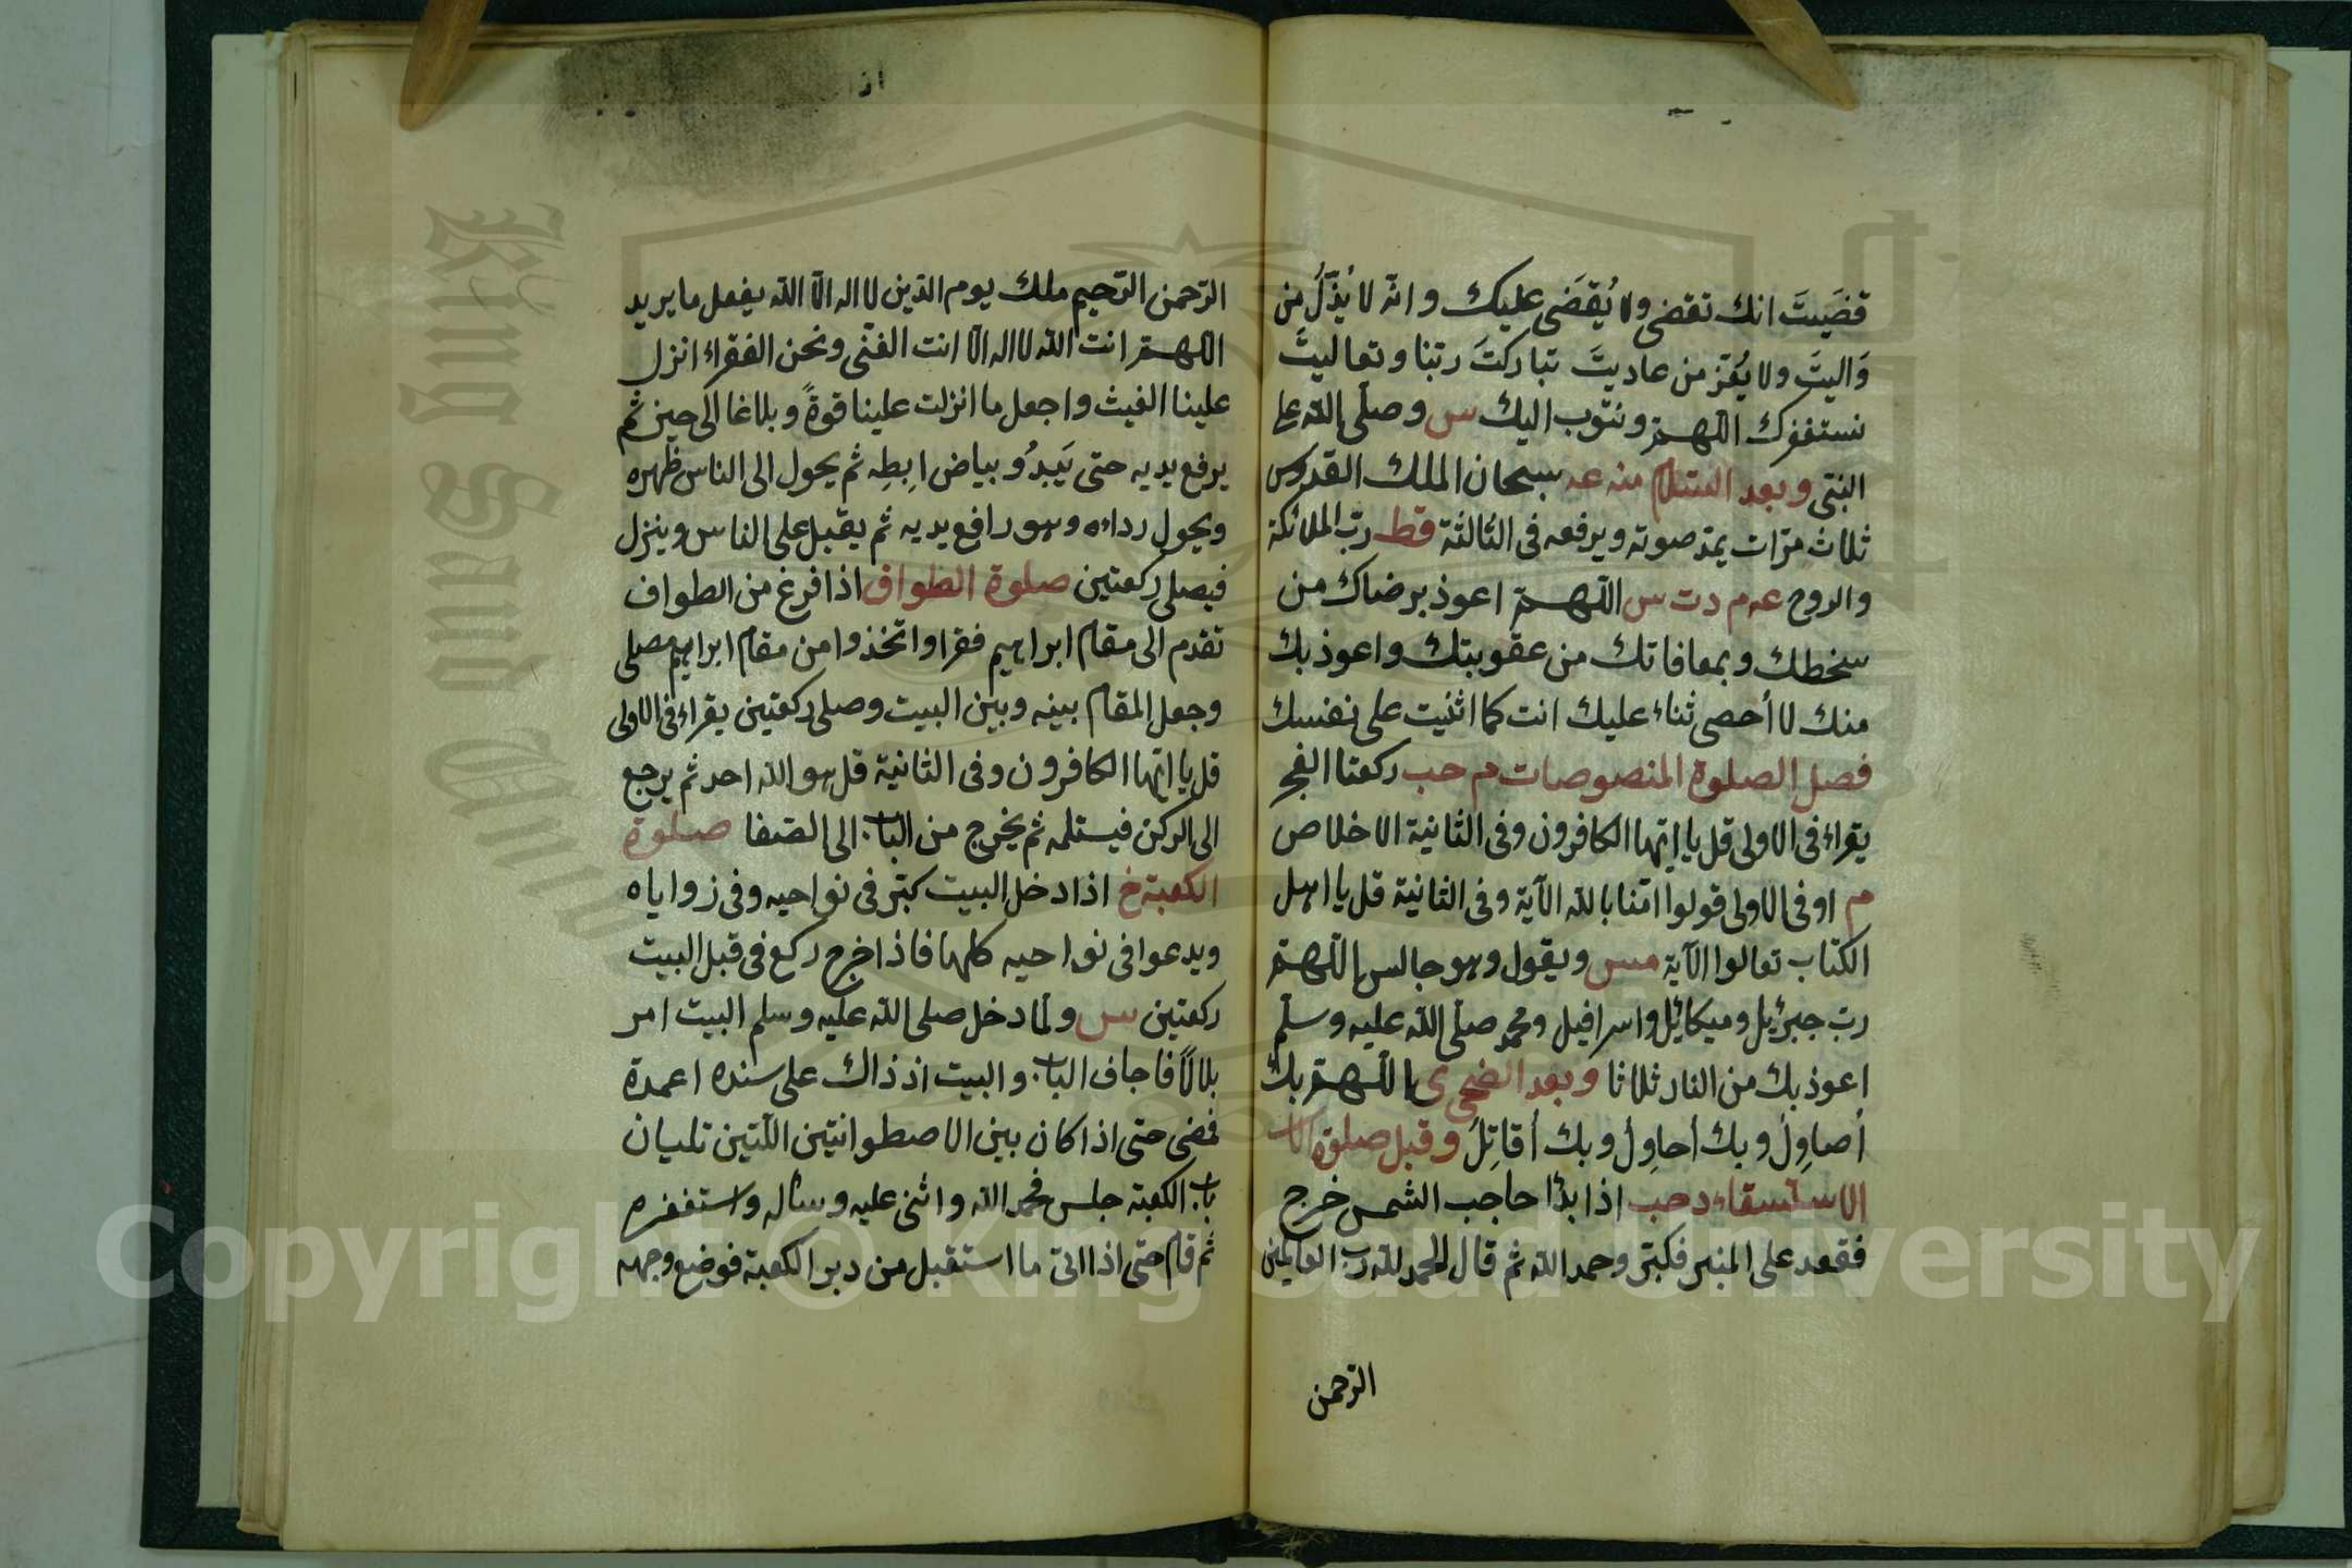 قضَيتَ انك تقضى ولا يُقضَى عليك وانّه لا يُذِّلُ من
وَاليتَ ولا يُعَز من عاديتَ تباركتَ ربّنا وتعاليتَ
نستغفرك اللهـمّ ونتوب اليك س وصلّى الله على
النبىّ وبعد السّلام منه عه سبحان الملك القدوس
ثلاث مرّات يمدّ صوته ويرفعه فى الثالثة قط ربّ الملائكة
والروح عه م دت س اللّهـمّ اعوذ برضاك من
سخطك وبمعافاتك من عقوبتك واعوذ بك
منك لا أحصى ثناء عليك انت كما اثنيت على نفسك
فصل الصلوة المنصوصات م حب ركعتا الفجر
يقراء فى الاولى قل يا ايّها الكافرون وفى الثانية الاخلاص
م او فى الاولى قولوا امّنا بالله الآية وفى الثانية قل يا اهل
الكتاب تعالوا الآية مس ويقول وهو جالس اللّهـمّ
ربّ جبرئيل وميكائيل واسرافيل ومحمد صلّى الله عليه وسلّم
اعوذ بك من النار ثلاثا وبعد الضحى ى اللّهـمّ بك
أصاوِلُ وبك أحاوِلُ وبك أقاتِلُ وقبل صلوة
الاستسقاء د حب اذا بدّا حاجب الشمس خرج
فقعد على المنبر فكبّر وحمد الله ثم قال الحمد لله رب العالمين
الرّحمن
الرّحمن الرّحيم ملك يوم الدّين لا اله الّا الله يفعل ما يريد
اللهـمّ انت الله لا اله الّا انت الغنى ونحن الفقراء انزل
علينا الغيث واجعل ما انزلت علينا قوةً وبلاغا الى حين ثم
يرفع يديه حتى يَبدُو بياض اِبطِه ثم يحول الى الناس ظهره
ويحول رداءه وهو رافع يديه ثم يقبل على الناس وينزل
فيصلى ركعتين صلوة الطواف اذا فرغ من الطواف
تقدم الى مقام ابراهيم فقرا واتخذوا من مقام ابراهيم مصلى
وجعل المقام بينه وبين البيت وصلى ركعتين يقراء فى الاولى
قل يا ايّها الكافرون وفى الثانية قل هو الله احد ثم يرجع
الى الركن فيستلمه ثم يخرج من الباب الى الصّفا صلوة
الكعبة خ اذا دخل البيت كبّر فى نواحيه وفى زواياه
ويدعوا فى نواحيه كلها فاذا خرج ركع فى قبل البيت
ركعتين س ولمّا دخل صلى الله عليه وسلم البيت امر
بلالاً فاجاف الباب والبيت اذ ذاك على سنده اعمدة
فمضى حتى اذا كان بين الاصطوانتين اللّتين تليان
باب الكعبة جلس فحمد الله واثنى عليه وساله واستغفره
ثم قام حتى اذا اتى ما استقبل من دبر الكعبة فوضع وجهه
Copyright © King Saud University